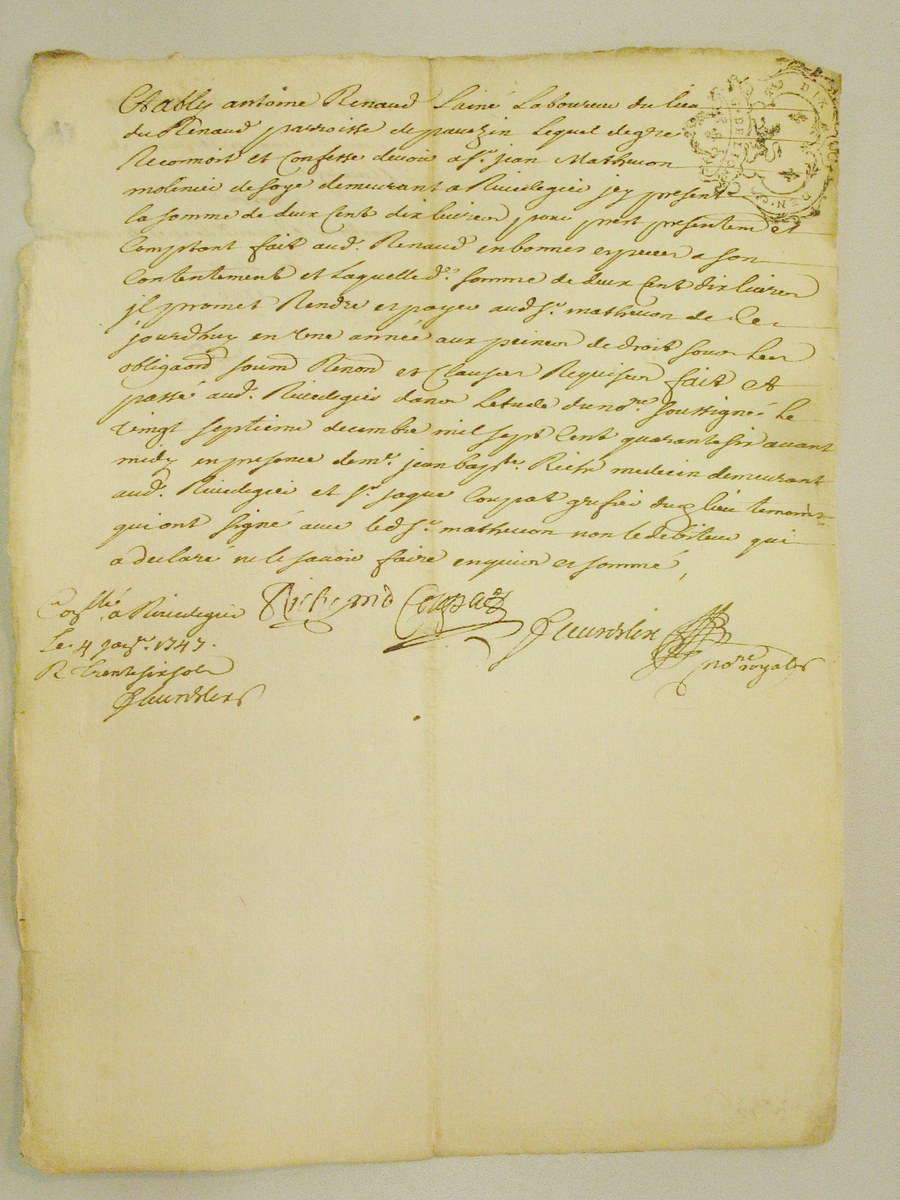 Estably antoine Renaud Lainé Laboureur du lieu
du Renaud parroisse de pavezin Lequel de gré
Reconnoit et Confesse devoir a Sr. jean Mathevon
molinier de soye demeurant a Rivedegiei jcy present
la somme de deux Cent dix livres, pour prest presentemt et
Comptant fait aud. Renaud en bonnes especes a son
Contentement et Laquelle de. somme de deux Cent dix livres
jl promet Rendre et payer aud Sr. mathevon de Ce
jourdhuy en une année aux peines de droit sous Les
obligaons soumns Renons et Clauses Requises fait et
passé aud. Rivedegiei dans Letude du nore. soussigné Le
vingt septieme decembre mil sept Cent quarante six avant
midy en presence de me. jean bapte. Rich medecin demeurant
aud. Rivedegiei et Sr. jaque Coupat grefié dud lieu temoins
qui ont signé avec led Sr. mathevon non le debiteur qui
a declaré ne le savoir faire enquis et sommé,
Conllé a Rivedegiei
Le 4 janr. 1747.
R Trente six sols
Fleurdelix
Coupat
Fleurdelix
nore. royal
DIX